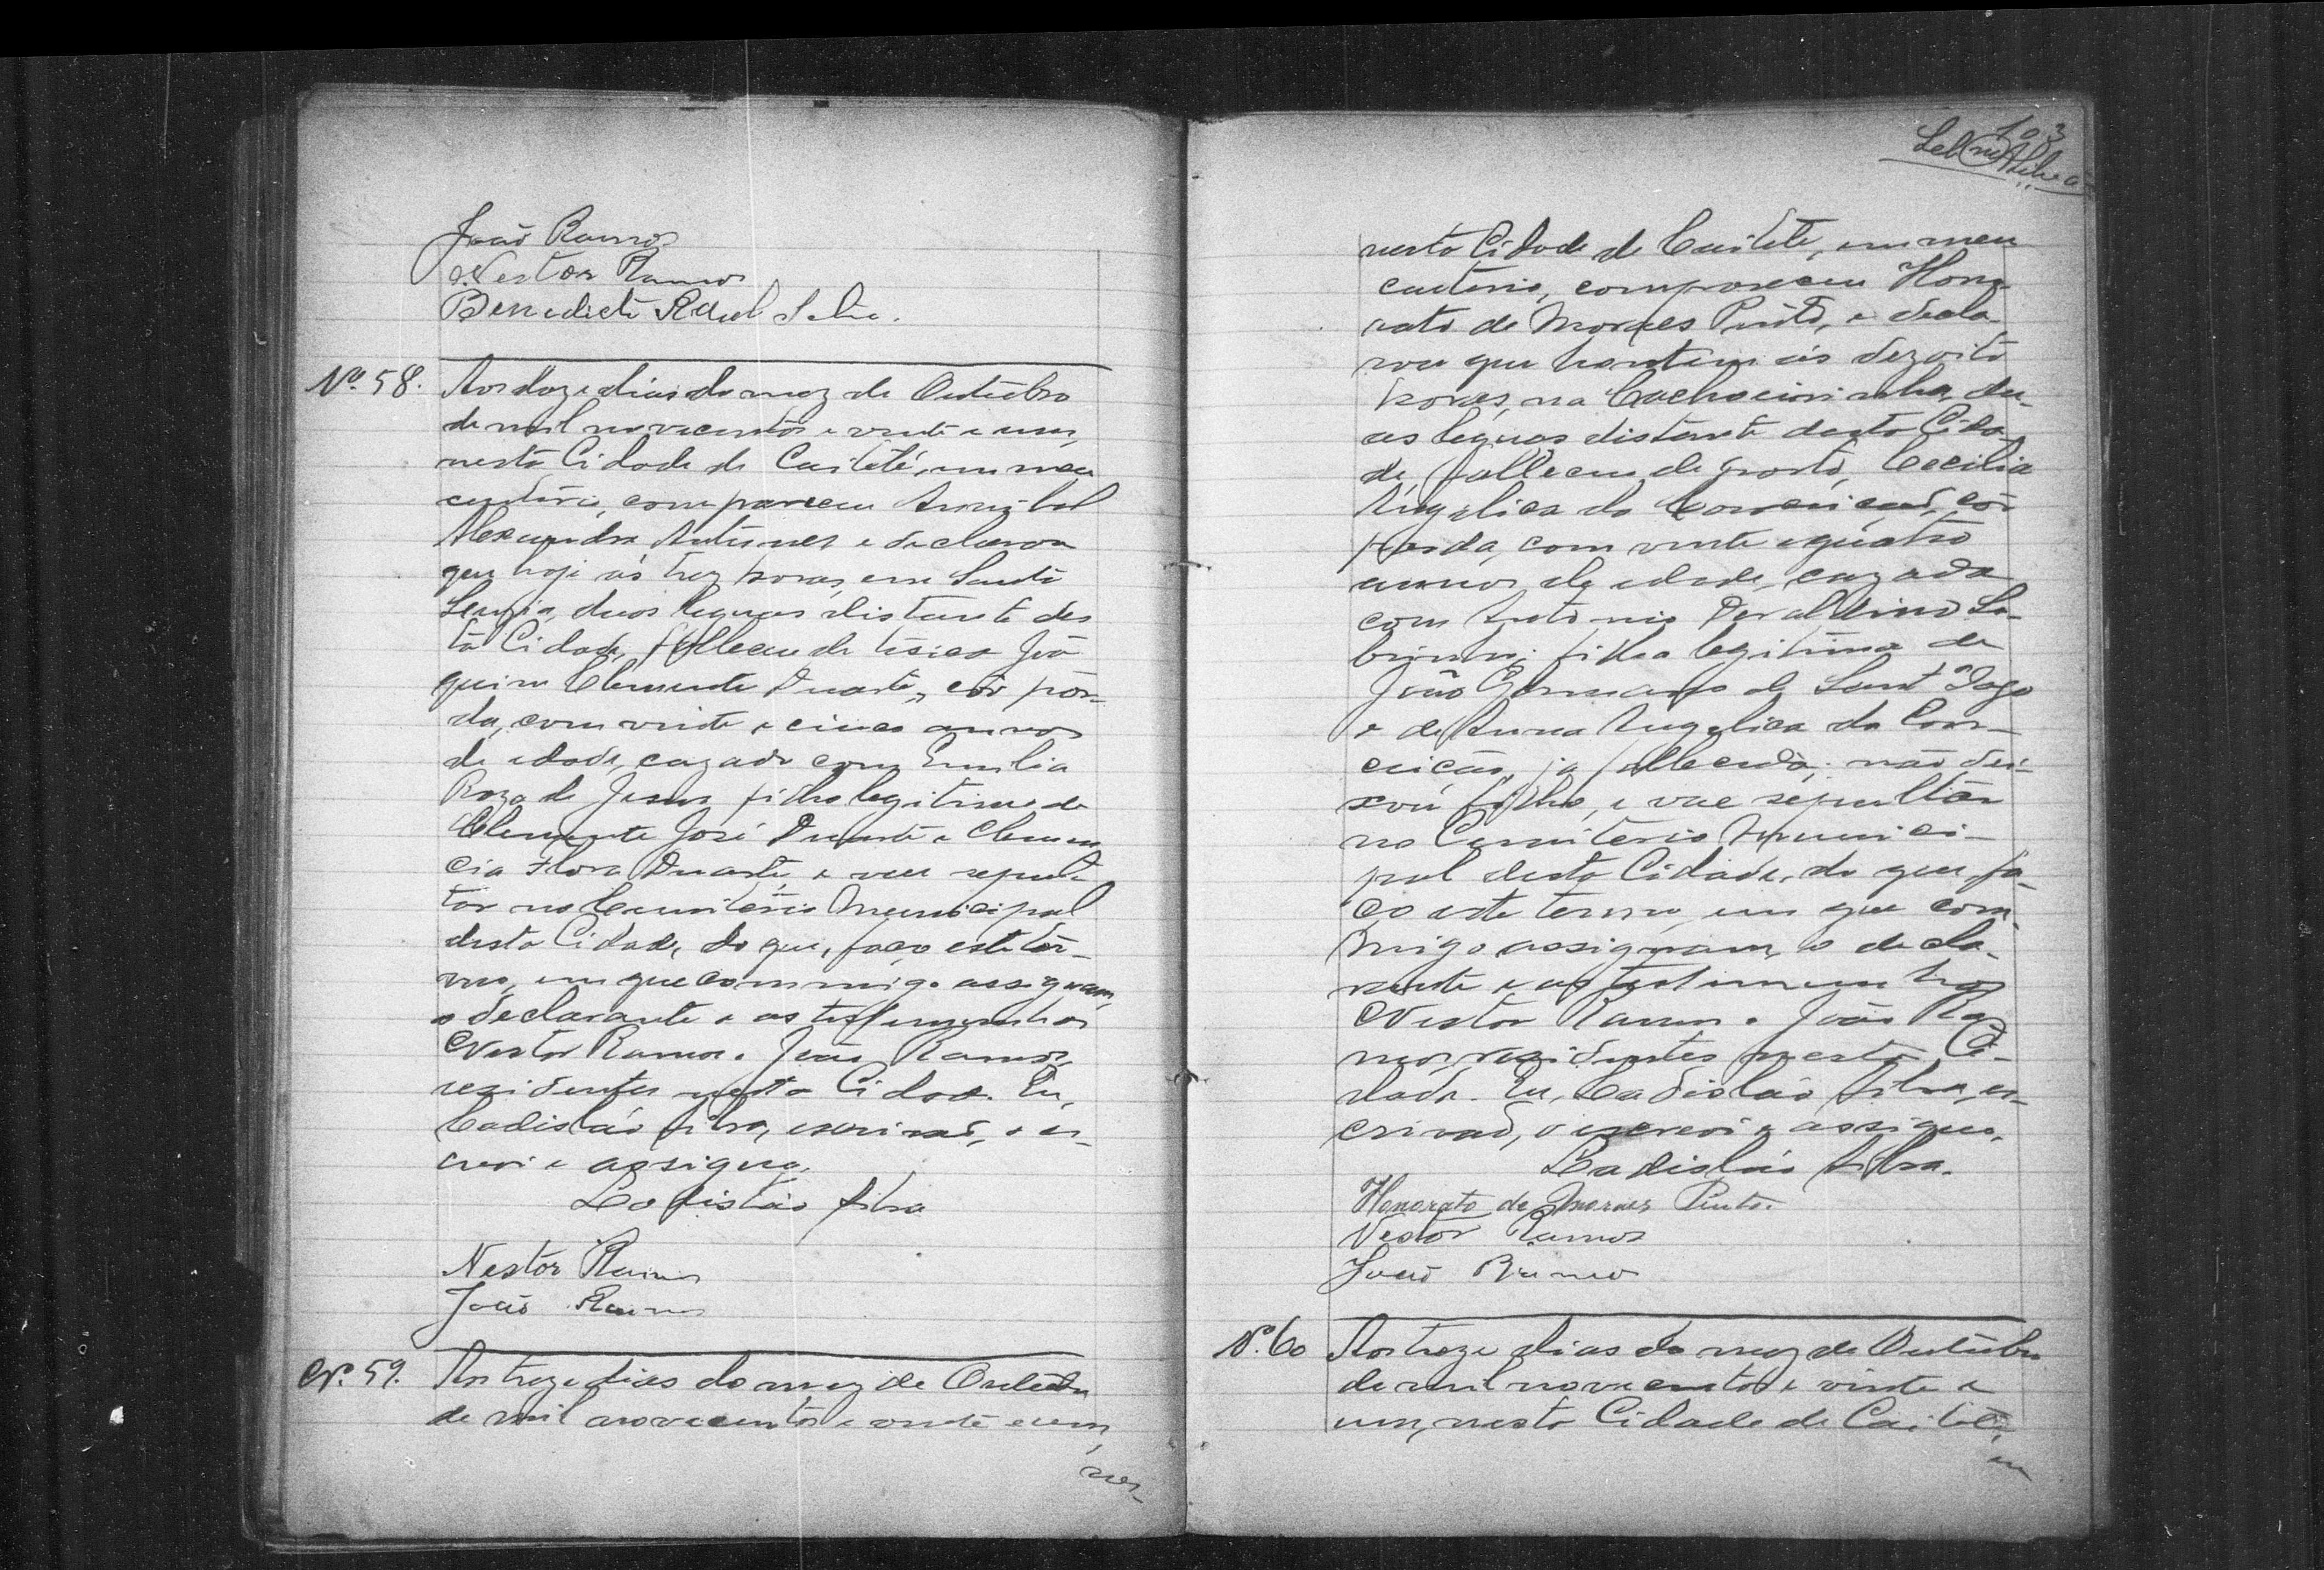 João Ramos
Nestor Ramos
Benedicto
Nº 58.
Aos doze dias do mez de Outubro
de mil novecentos e vinte e um,
nesta Cidade de Caiteté, em meu
cartorio, compareceu Annibal
Alexandre Antunes e declarou
que hoje ás trez horas, em Santa
Luzia, duas leguas distante des
ta Cidade, falleceu de tisica Joa
quim Clemente Duarte, côr par-
da, com vinte e cinco annos
de edade, cazado com Emilia
Roza de Jesus, filho legitimo de
Clemente José Duarte e Clemen
cia Flora Duarte, e vae sepul
tar no Cemiterio Municipal
desta Cidade, do que, faço este ter-
mo, em que commigo assignam,
o declarante e as testemunhas
Nestor Ramos e João Ramos,
rezidentes nesta Cidade. Eu,
Ladisláo Silva, escrivão, o es-
crevi e assigno.
Ladisláo Silva
Nestor Ramos
João Ramos
Nº 59.
Aos treze dias do mez de Outubro
de mil novecentos e vinte e um,
nes-
103
nesta Cidade de Caiteté, em meu
cartorio, compareceu Hono-
rato de Moraes Pinto, e decla
rou que hontem ás dezoito
horas, na Cachoeirinha, du-
as leguas distante desta Cida-
de, falleceu de parto, Cecilia
Angelica da Conceição, côr
parda, com vinte e quatro
annos de edade, cazada
com Antonio
filha legitima de
João Germano de Sant'Iago
e de Anna Angelica da Con-
ceição, já fallecida; não dei-
xou filho, e vae sepultar
no Cemiterio Munici-
pal desta Cidade, do que, fa-
ço este termo, em que com-
migo assignam, o decla-
rante e as testimunhas
Nestor Ramos e João Ra
mos, rezidentes nesta Ci-
dade. Eu, Ladisláo Silva, es-
crivão, o escrevi e assigno.
Ladisláo Silva.
Honorato de Moraes Pinto.
Nestor Ramos
João Ramos
Nº. 60
Aos treze dias do mez de Outubro
de mil novecentos e vinte e
um, nesta Cidade de Caiteté,
em